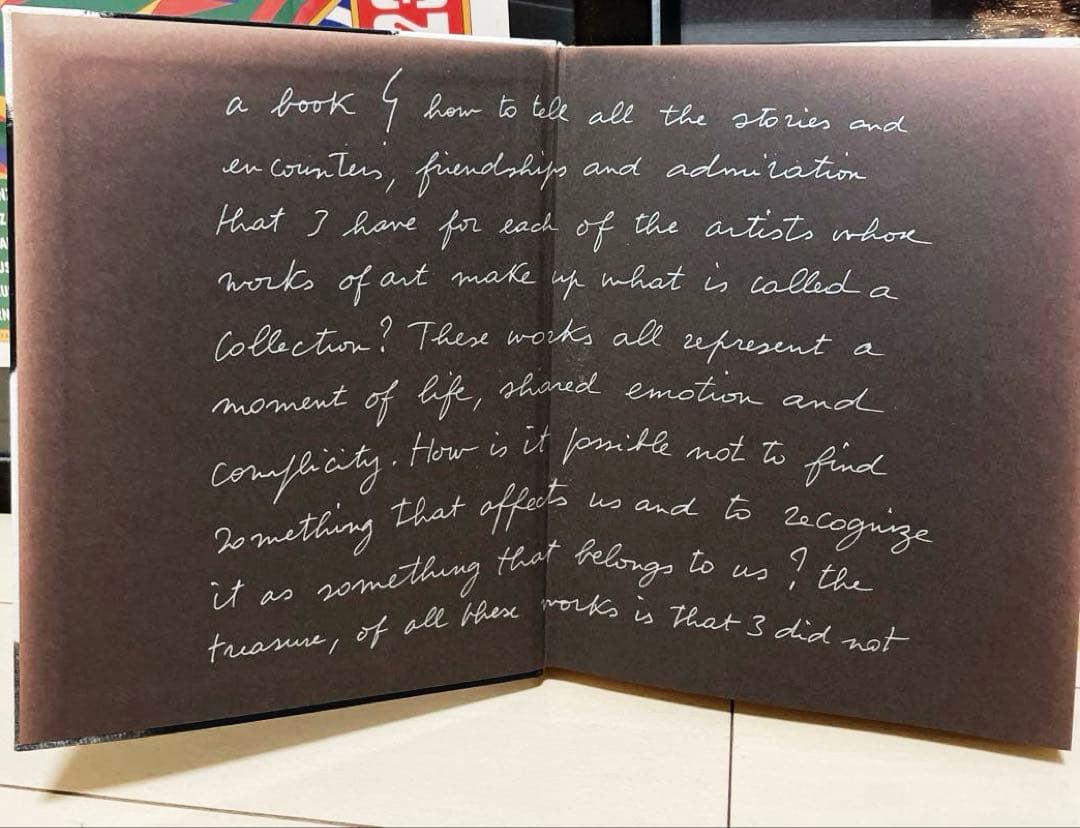 a book ? how to tell all the stories and
encounters, friendships and admiration
that I have for each of the artists whose
works of art make up what is called a
collection? These works all represent a
moment of life, shared emotion and
complicity. How is it possible not to find
something that affects us and to recognize
it as something that belongs to us? the
treasure, of all these works is that I did not